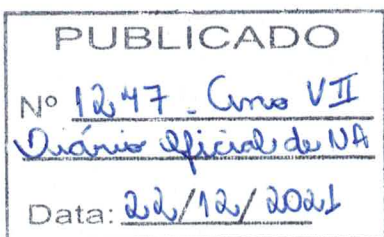 PUBLICADO
Nº 1247 - Ano VII
Diário Oficial de NA
Data: 22/12/2021